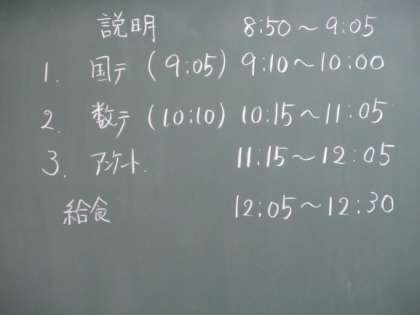 説明 8:50～9:05
1. 国テ (9:05) 9:10～10:00
2. 数テ (10:10) 10:15～11:05
3. アンケート. 11:15～12:05
給食 12:05～12:30